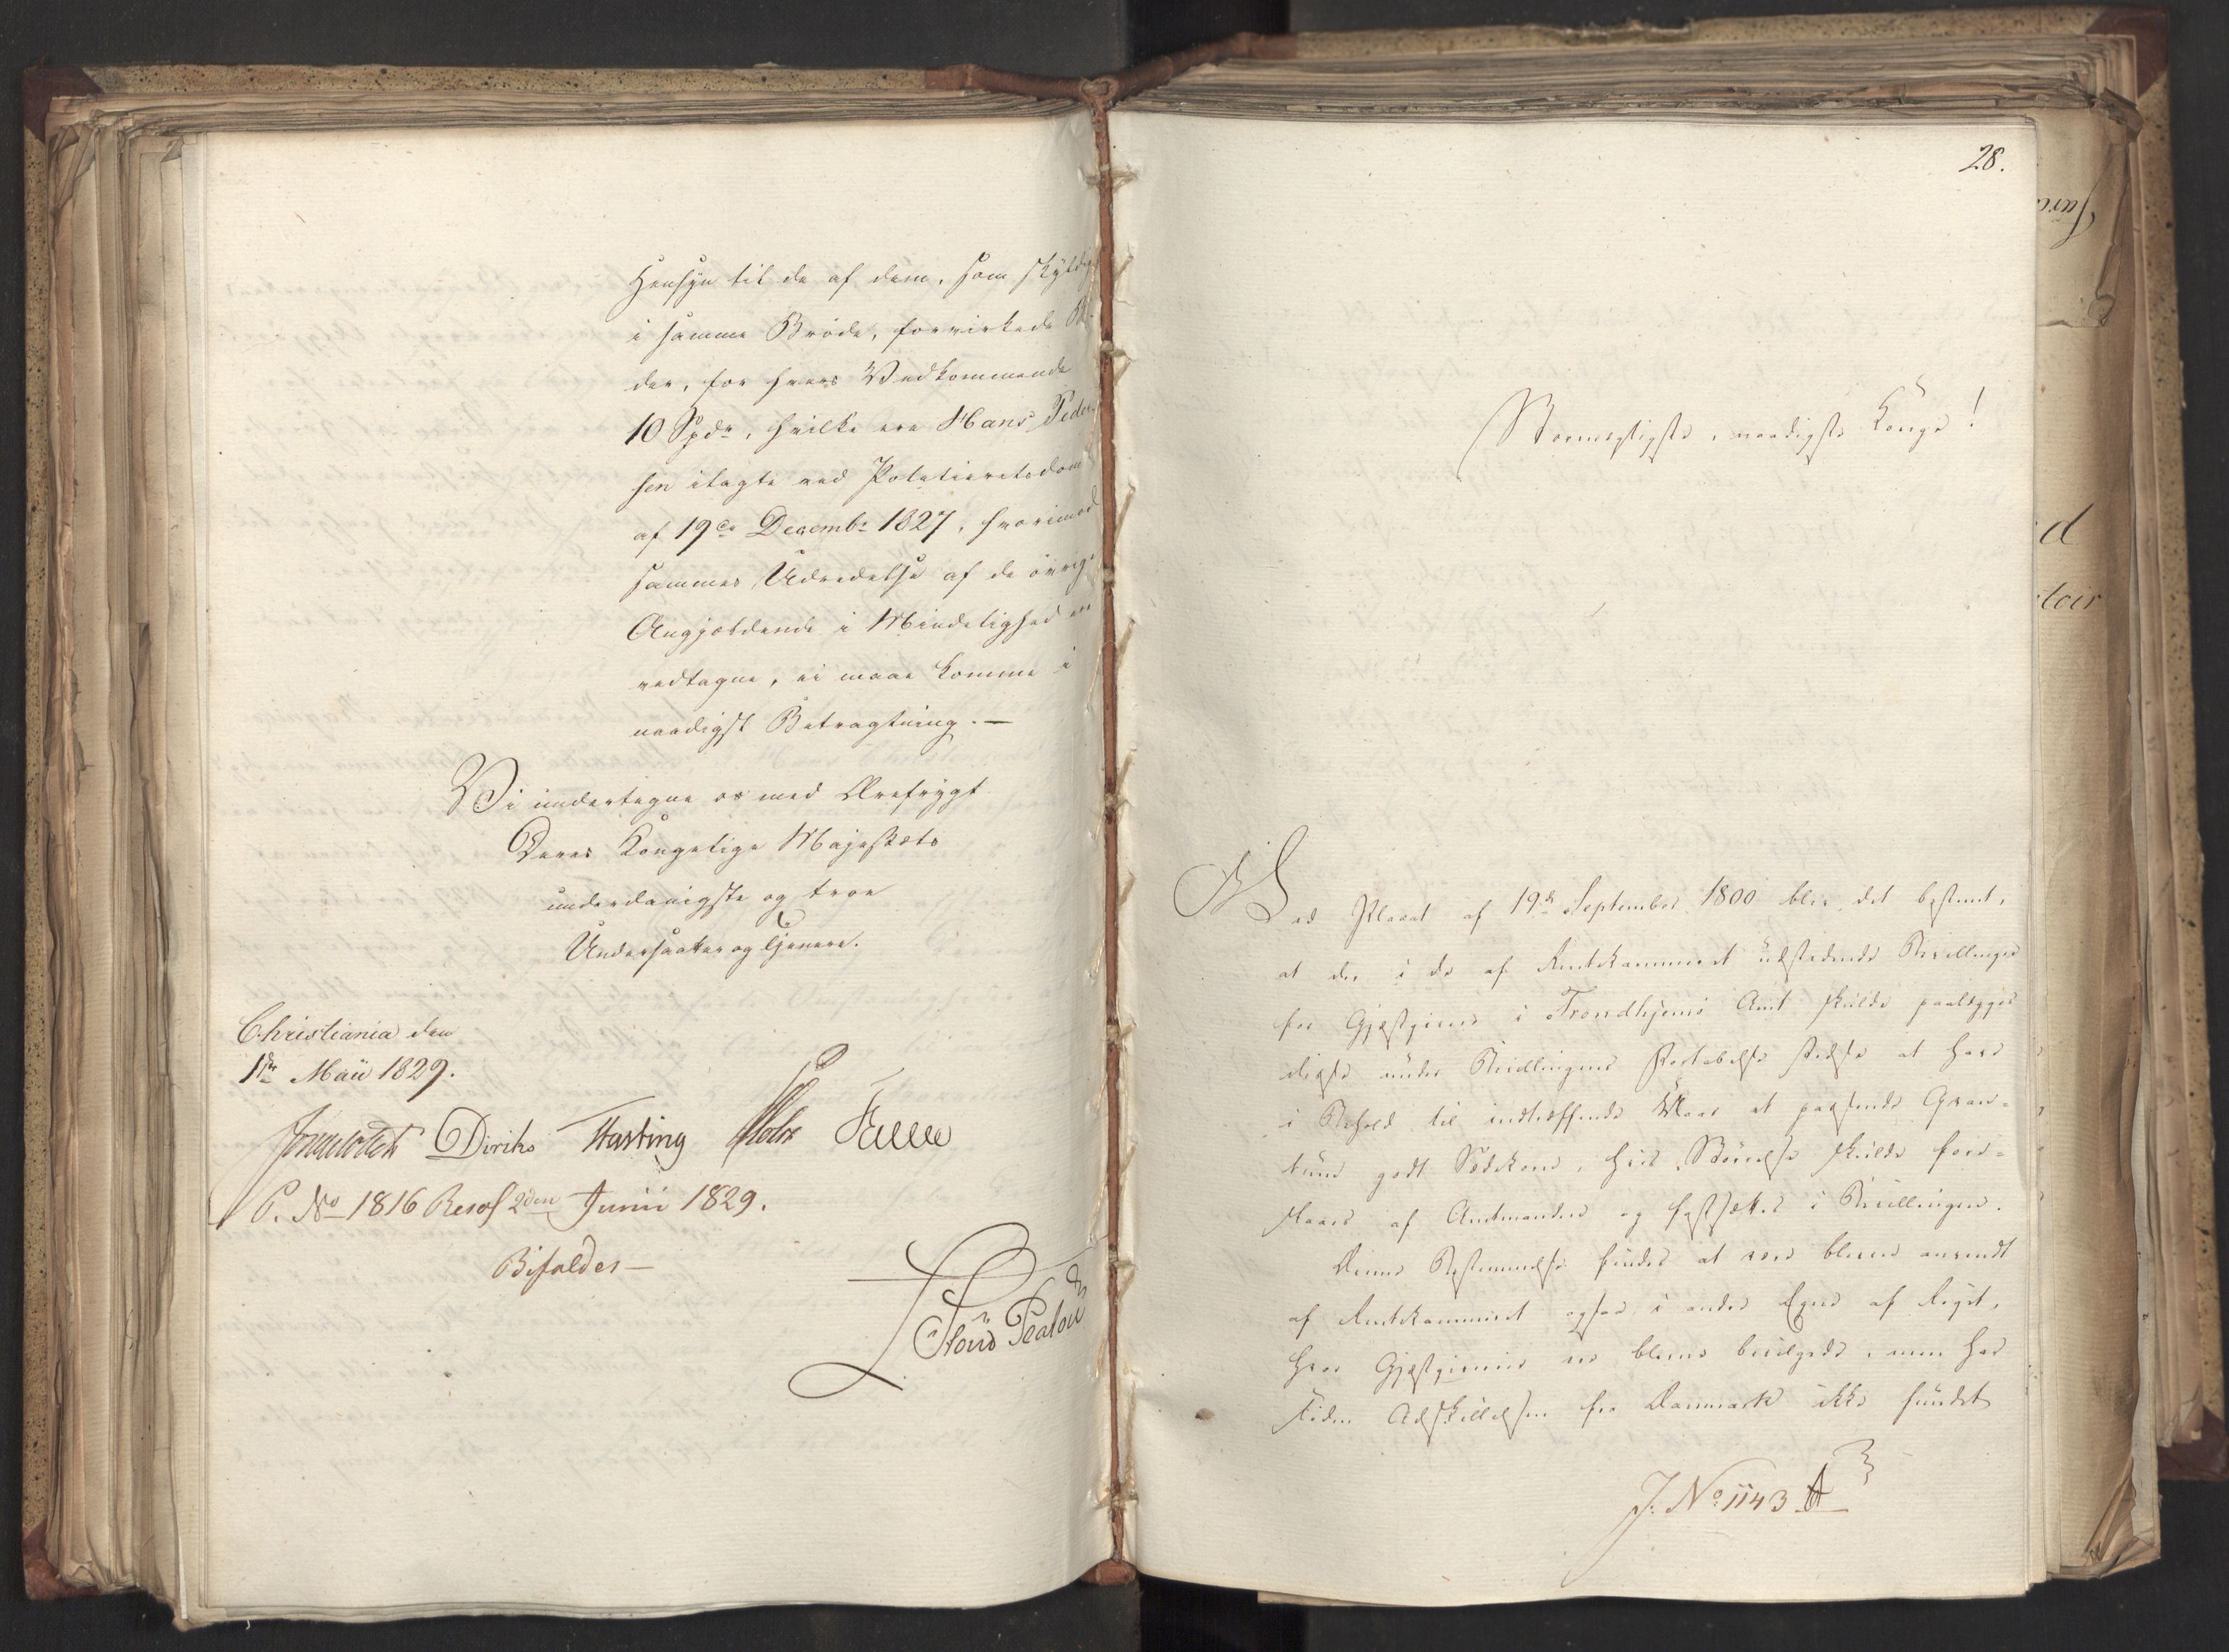 Hensyn til de af dem, som skyldig
i samme Bröde, forvirkede Bö-
der, for hvers Vedkommende
10 Spdr, hvilke ere Hans Peder
sen ilagte ved Politieretsdom
af 19de Decembr 1827, hvorimod
sammes Udredelse af de övrige
Angjældende i Mindelighed er
vedtagne, ei maae komme i
naadigst Betragtning. —
Vi undertegne os med Ærefrygt
Deres Kongelige Majestæts
underdanigste og troe
Undersaatter og tjenere.
Christiania den
1ste Maii 1829.
Diriks Fasting Holst
P. No 1816 Resol 2den Junii 1829.
Bifaldes —
28.
Stormægtigste, naadigste Konge!
Ved Placat af 19de September 1800 blev det bestemt,
at der i de af Rentekammeret udstedende Bevillinger
for Gjæstgivere i Trondhjems Amt skulde paalægges
disse under Bevillingens Fortabelse stedse at have
i Behold til indtræffende Vaar et passende Qvan-
tum godt Sædekorn, hvis Störrelse skulde fore-
slaaes af Amtmanden og fastsættes i Bevillingen.
Denne Bestemmelse findes at være bleven anvendt
af Rentekammeret ogsaa i andre Egne af Riget,
hvor Gjæstgiverier ere blevne bevilgede, men har
siden Adskillelsen fra Danmark ikke fundet
J: No 1143 A